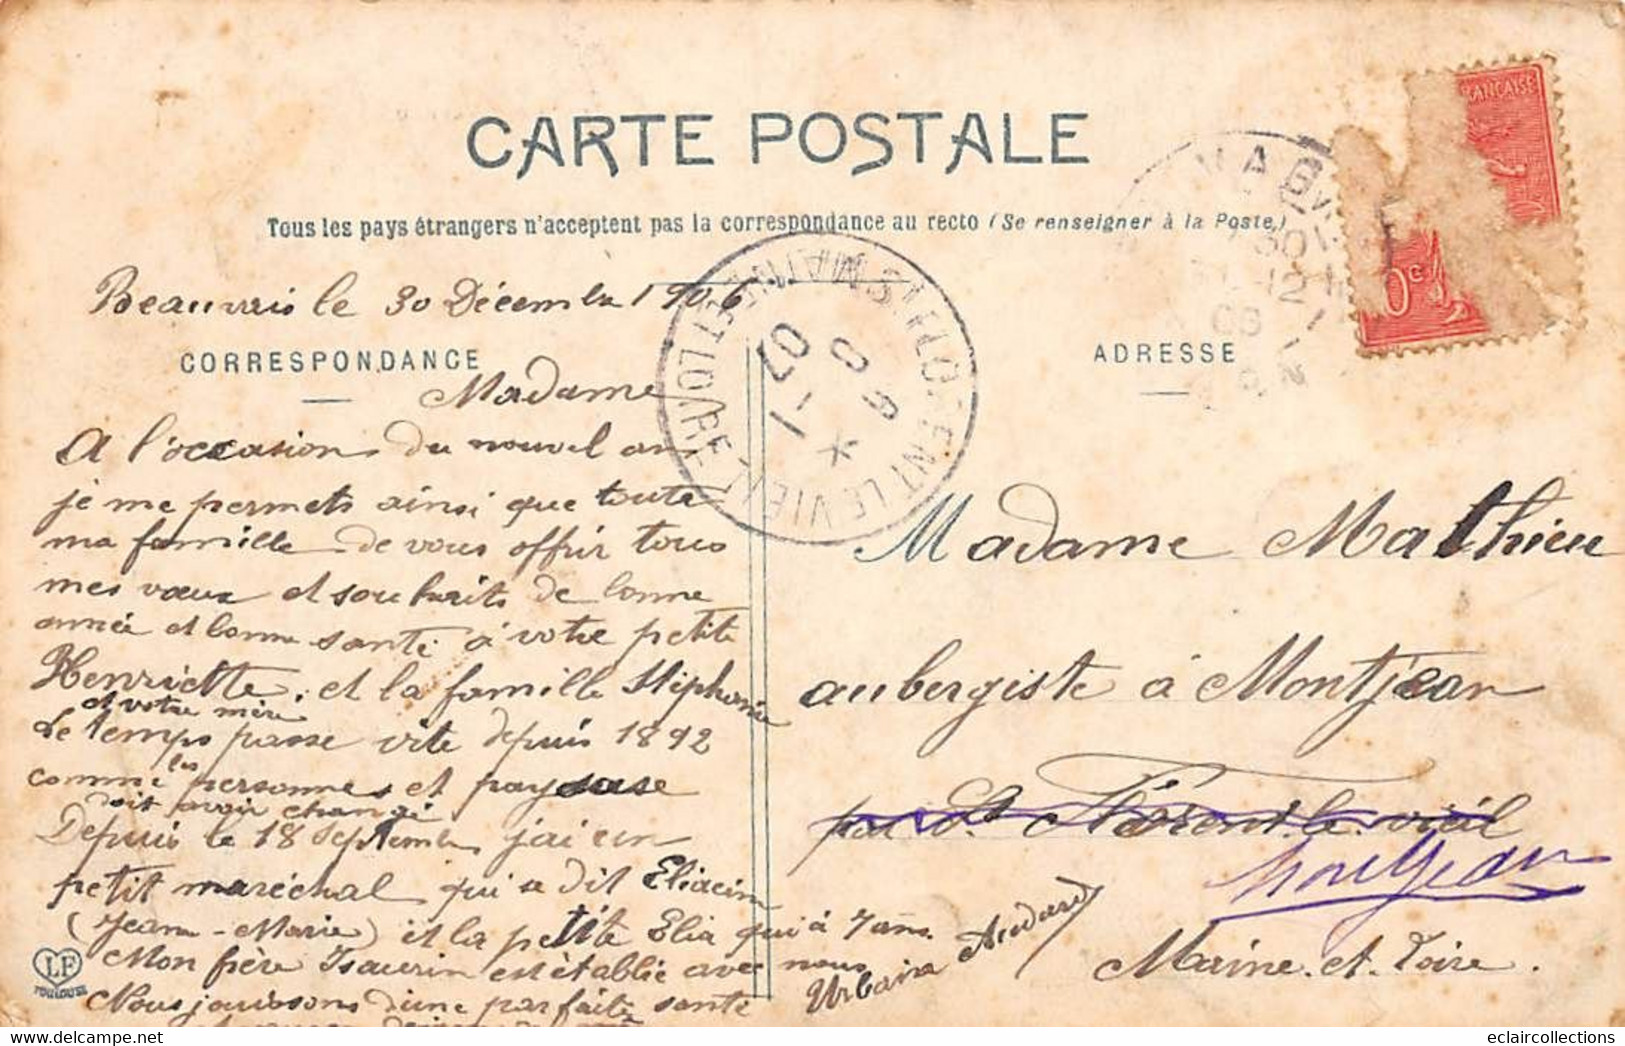 CARTE POSTALE
Tous les pays étrangers n'acceptent pas la correspondance au recto (Se renseigner à la Poste.)
RANÇAISE
0c
Beauvais le 30 Décembre 1906
CORRESPONDANCE
ADRESSE
ST FLORENT LE VIEIL
MAINE ET LOIRE
8 9
-1
07
Madame
A l'occasion du nouvel an
je me permets ainsi que toute
ma famille de vous offrir tous
mes vœux et souhaits de bonne
année et bonne santé à votre petite
Henriette. et la famille Stéphanie
et votre mère
Le temps passe vite depuis 1892
comme les personnes et pays
doit avoir changé
Depuis le 18 Septembre j'ai un
petit maréchal qui a dit Eliacin
(Jean-Marie) et la petite Elia qui à 7 ans.
Mon frère Isaurin est établie avec nous
Nous jouissons d'une parfaite santé
Urbain Audard
Madame Mathieu
aubergiste à Montjean
par St Florent le vieil
Montjean
Maine-et-Loire.
LF
TOULOUSE
eclaircollections